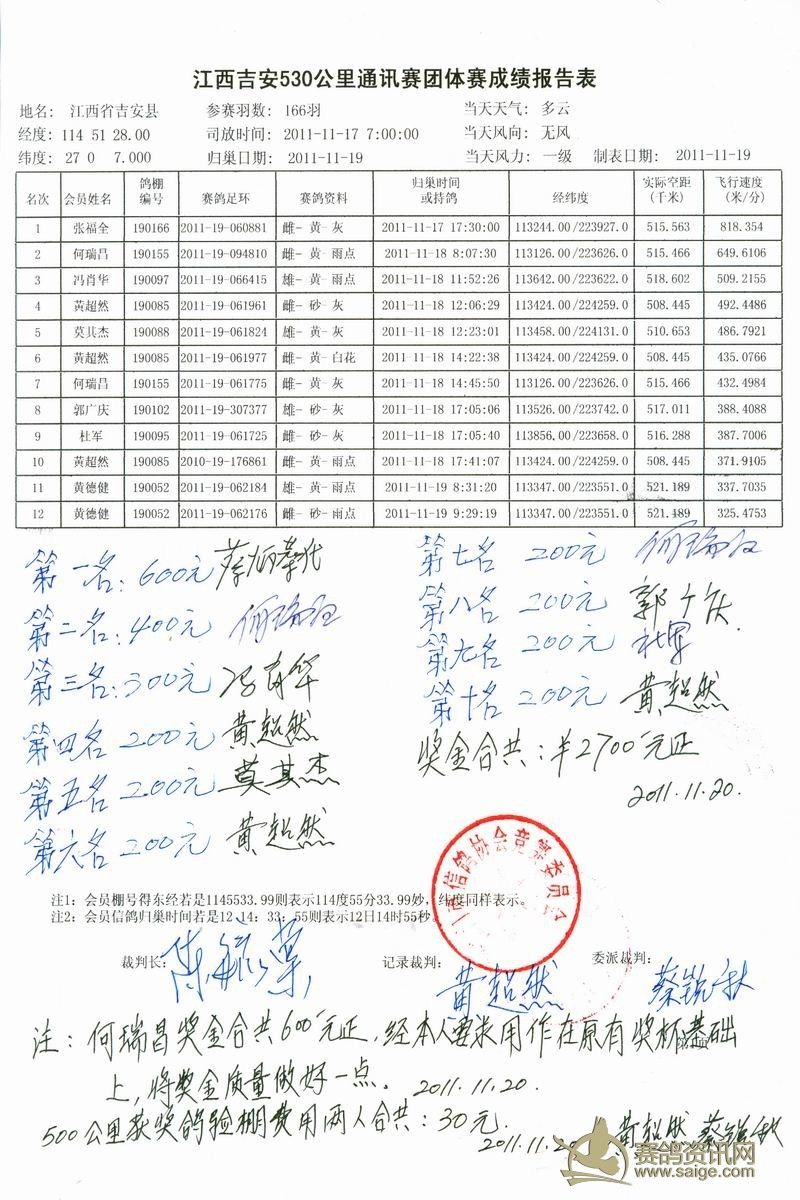 江西吉安530公里通讯赛团体赛成绩报告表
地名: 江西省吉安县 参赛羽数: 166羽 当天天气: 多云
经度: 114 51 28.00 司放时间: 2011-11-17 7:00:00 当天风向: 无风
纬度: 27 0 7.000 归巢日期: 2011-11-19 当天风力: 一级 制表日期: 2011-11-19
名次 会员姓名 鸽棚编号 赛鸽足环 赛鸽资料 归巢时间或持鸽 经纬度 实际空距(千米) 飞行速度(米/分)
1 张福全 190166 2011-19-060881 雌- 黄- 灰 2011-11-17 17:30:00 113244.00/223927.0 515.563 818.354
2 何瑞昌 190155 2011-19-094810 雌- 黄- 雨点 2011-11-18 8:07:30 113126.00/223626.0 515.466 649.6106
3 冯肖华 190097 2011-19-066415 雄- 黄- 雨点 2011-11-18 11:52:26 113642.00/223622.0 518.602 509.2155
4 黄超然 190085 2011-19-061961 雌- 砂- 灰 2011-11-18 12:06:29 113424.00/224259.0 508.445 492.4486
5 莫其杰 190088 2011-19-061824 雄- 黄- 灰 2011-11-18 12:23:01 113458.00/224131.0 510.653 486.7921
6 黄超然 190085 2011-19-061977 雌- 黄- 白花 2011-11-18 14:22:38 113424.00/224259.0 508.445 435.0766
7 何瑞昌 190155 2011-19-061775 雄- 黄- 灰 2011-11-18 14:45:50 113126.00/223626.0 515.466 432.4984
8 郭广庆 190102 2011-19-307377 雄- 砂- 灰 2011-11-18 17:05:06 113526.00/223742.0 517.011 388.4088
9 杜军 190095 2011-19-061725 雌- 砂- 灰 2011-11-18 17:05:40 113856.00/223658.0 516.288 387.7006
10 黄超然 190085 2010-19-176861 雌- 黄- 雨点 2011-11-18 17:41:07 113424.00/224259.0 508.445 371.9105
11 黄德健 190052 2011-19-062184 雄- 黄- 雨点 2011-11-19 8:31:20 113347.00/223551.0 521.189 337.7035
12 黄德健 190052 2011-19-062176 雌- 砂- 雨点 2011-11-19 9:29:19 113347.00/223551.0 521.189 325.4753
第一名: 600元
第二名: 400元 何瑞昌
第三名: 300元 冯肖华
第四名 200元 黄超然
第五名 200元 莫其杰
第六名 200元 黄超然
第七名 200元 何瑞昌
第八名 200元 郭广庆
第九名 200元 杜军
第十名 200元 黄超然
奖金合共:¥2700元正
2011.11.20.
信鸽协会竞赛委员会
注1: 会员棚号得东经若是1145533.99则表示114度55分33.99妙, 纬度同样表示。
注2: 会员信鸽归巢时间若是12:14: 33: 55则表示12日14时55秒。
裁判长: 记录裁判: 黄超然 委派裁判: 蔡锐秋
注: 何瑞昌奖金合共600元正, 经本人要求用作在原有奖杯基础
上, 将奖金质量做好一点。 2011.11.20.
500公里获奖鸽验棚费用两人合共: 30元.
2011.11.20 黄超然 蔡锐秋
赛鸽资讯网
www.saige.com